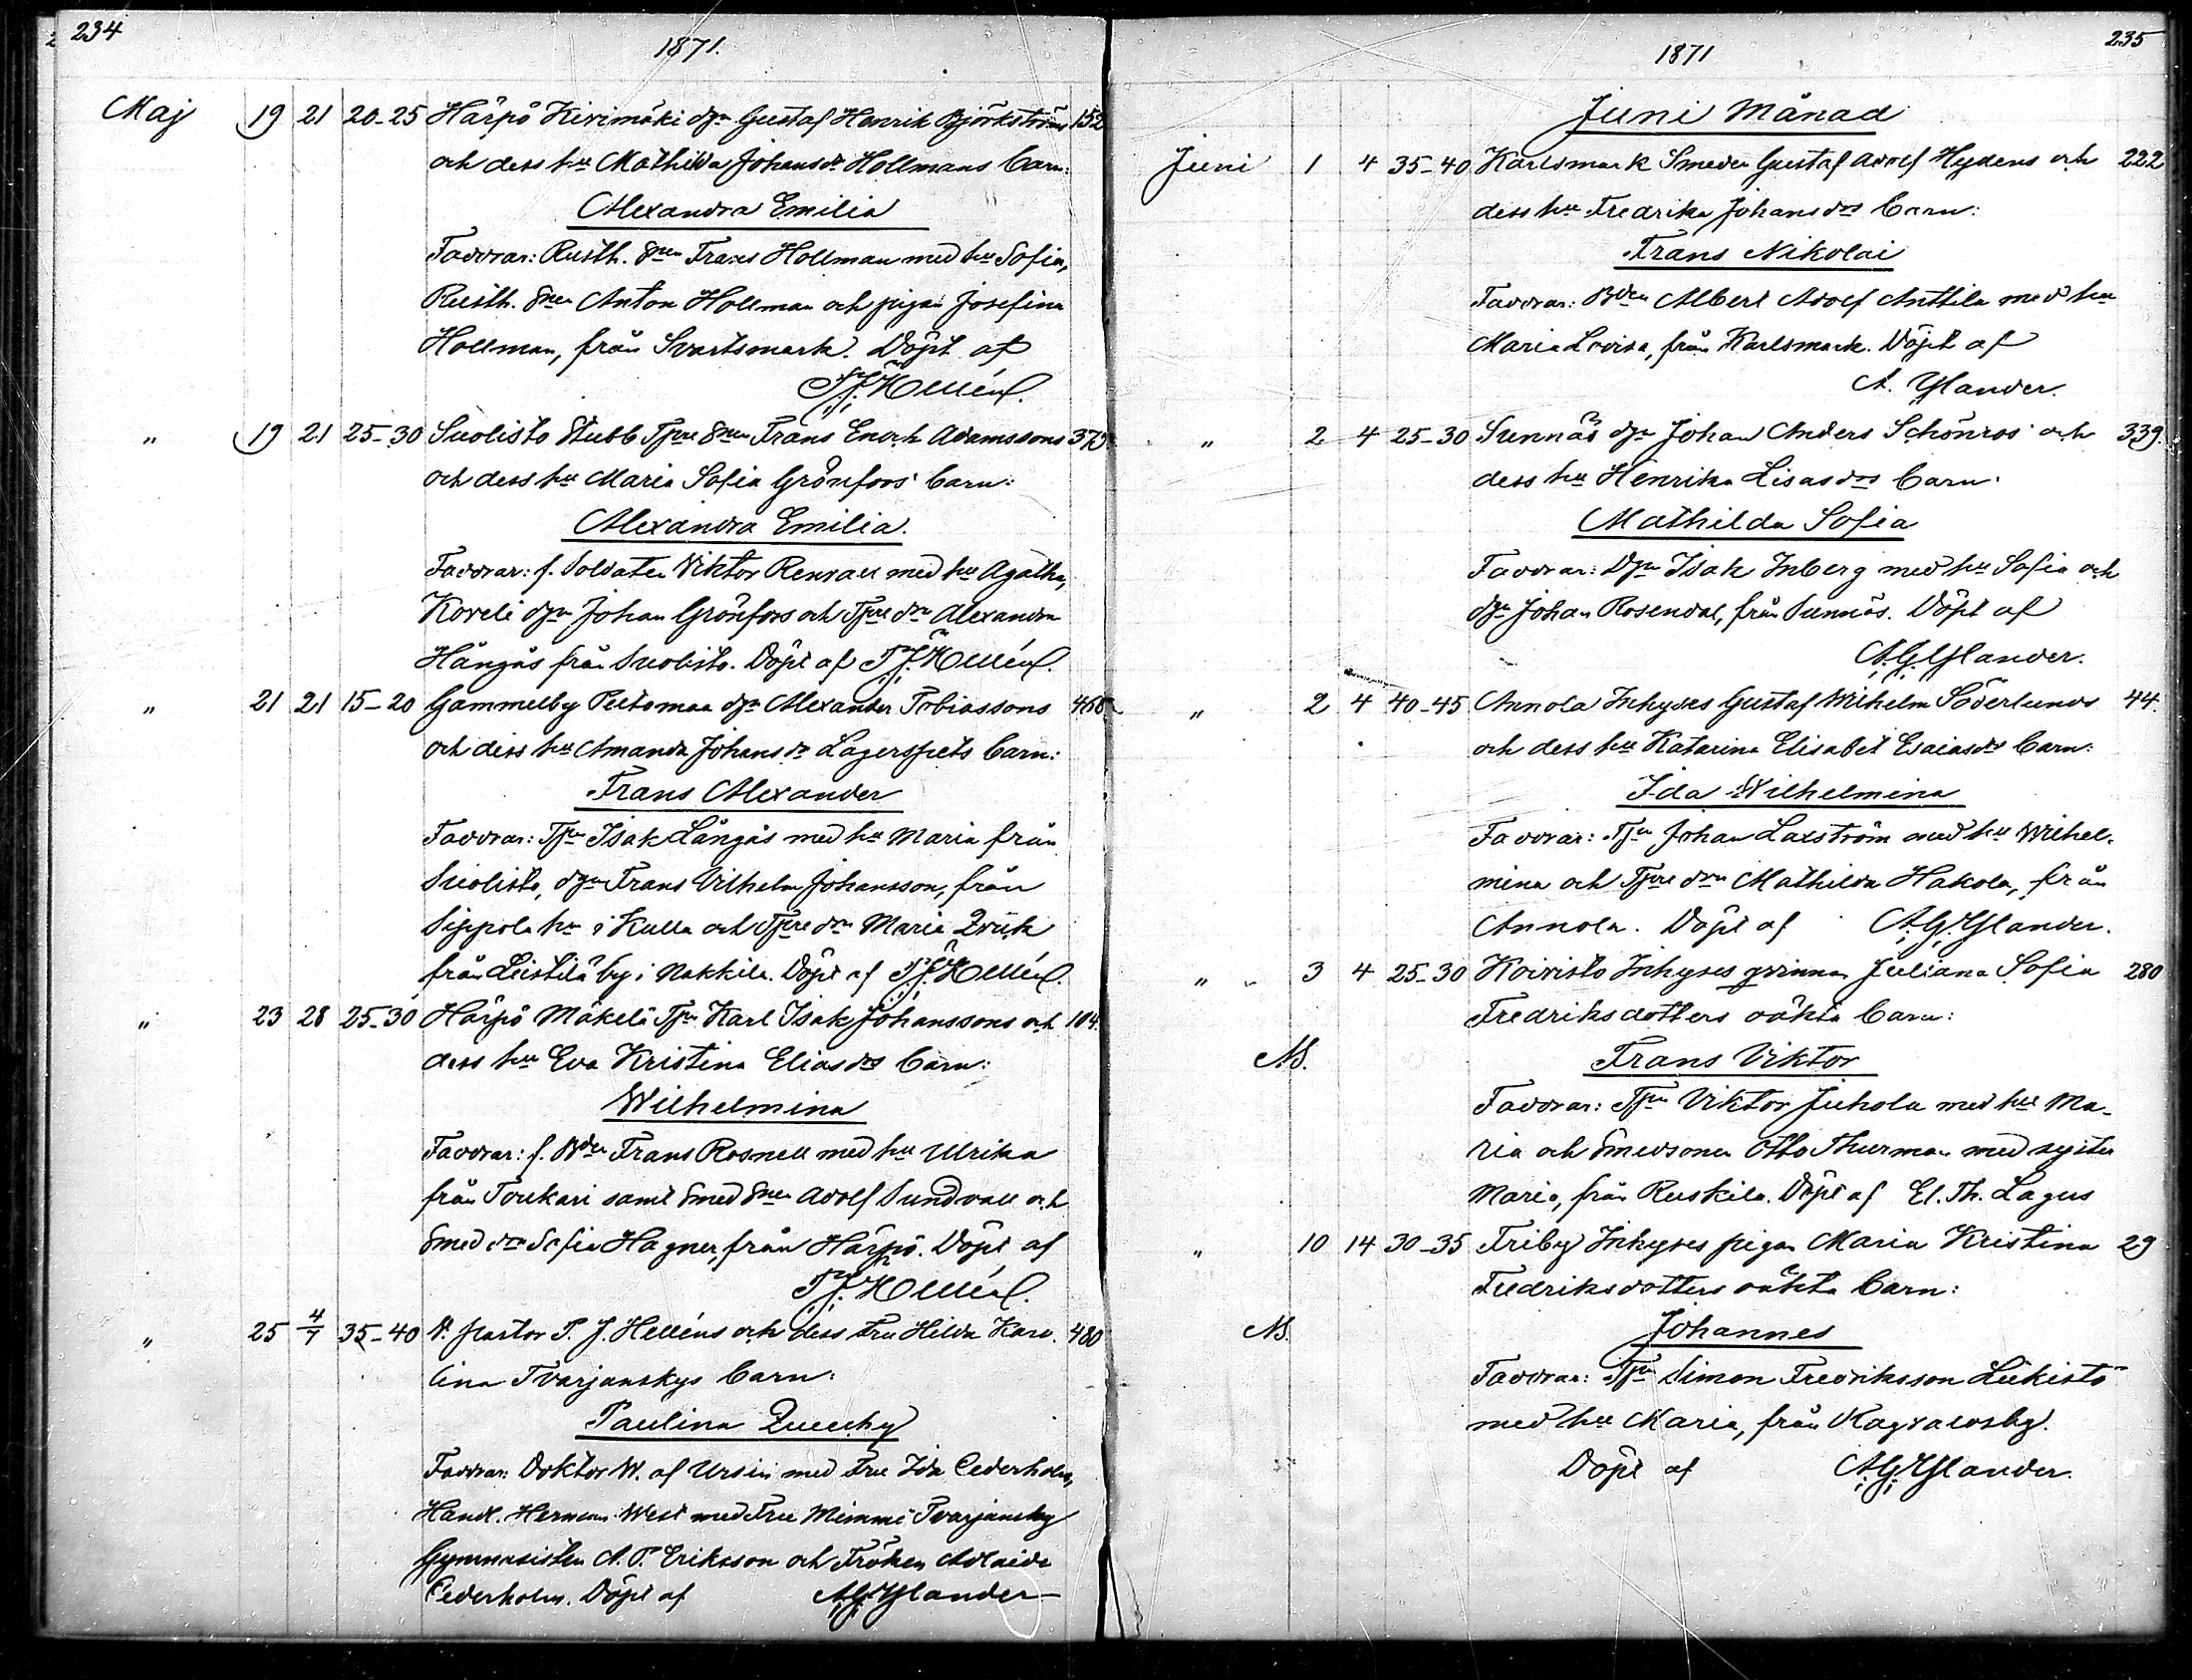 234
1871.
Maj 19 21 20-25 Härpö Kivimäki dgn Gustaf Henrik Björkströms 152
och dess hu Mathilda Johansdr Hollmans barn:
Alexandra Emilia
Faddrar: Rusth. snen Frans Hollman med hu Sofia,
Rusth. snen Anton Hollman och pigan Josefina
Hollman, från Svartsmark. Döpt af
T. J. Hellén.
" 19 21 25-30 Suolisto Stubb Tpre snen Frans Enoch Adamssons 379
och dess hu Maria Sofia Grönfors' barn:
Alexandra Emilia.
Faddrar: f. Soldaten Viktor Renvall med hu Agatha,
Koveli dgn Johan Grönfors och Tpre drn Alexandra
Hängäs från Suolisto. Döpt af T. J. Hellén.
" 21 21 15-20 Gammelby Peltomaa dgn Alexander Tobiassons 466
och dess hu Amanda Johansdr Lagerspets barn:
Frans Alexander
Faddrar: Tpn Isak Långäs med hu Maria från
Suolisto, dgn Frans Vilhelm Johansson, från
Sippola hn i Kulla och Tpre drn Maria
från Leistilä by i Nakkila. Döpt af T. J. Hellén.
" 23 28 25-30 Härpö Mäkelä Tpn Karl Isak Johanssons och 104.
dess hu Eva Kristina Eliasdrs barn:
Wilhelmina
Faddrar: f. Bden Frans Rosnell med hu Ulrika
från Toukari samt Smed snen Adolf Sundvall och
Smed drn Sofia Hagner, från Härpö. Döpt af
T. J. Hellén.
" 25 4/7 35-40 V. pastor T. J. Helléns och dess Fru Hilda Karo- 480
lina Tvarjanskys barn:
Paulina
Faddrar: Doktor W. af Ursin med Fru Ida Cederholm,
Handl. Herman West med Fru Mimmi Tvarjansky
Gymnasisten A. P. Eriksson och Fröken Adelaide
Cederholm. Döpt af A. G. Ylander
235
1871
Juni Månad
Juni 1 4 35-40 Karlsmark Smeden Gustaf Adolf Hydens och 222
dess hu Fredrika Johansdrs barn:
Frans Nikolai
Faddrar: Bden Albert Adolf Anttila med hu
Maria Lovisa, från Karlsmark. Döpt af
A. Ylander.
" 2 4 25-30 Sunnäs dgn Johan Anders Schönros' och 339.
dess hu Henrika Lisasdrs barn:
Mathilda Sofia
Faddrar: Dgn Isak Inberg med hu Sofia och
dgn Johan Rosendal, från Sunnäs. Döpt af
A. G. Ylander.
" 2 4 40-45 Annola Inhyses Gustaf Wilhelm Söderlunds 44.
och dess hu Katarina Elisabet Esaiasdrs barn:
Ida Wilhelmina
Faddrar: Tpn Johan Laxström med hu Wilhel-
mina och Tpre drn Mathilda Hakola, från
Annola. Döpt af A. G. Ylander.
" 3 4 25-30 Koivisto Inhyses qvinnan Juliana Sofia 280
Fredriksdotters oäkta barn:
NB. Frans Viktor
Faddrar: Tpn Viktor Juhola med hu Ma-
ria och Smedsonen Otto Thurman med syster
Maria, från Ruskila. Döpt af El. Th. Lagus
" 10 14 30-35 Friby Inhyses pigan Maria Kristina 29
Fredriksdotters oäkta barn:
NB. Johannes
Faddrar: Tpn Simon Fredriksson Liikistö
med hu Maria, från Ragvaldsby.
Döpt af A. G. Ylander.